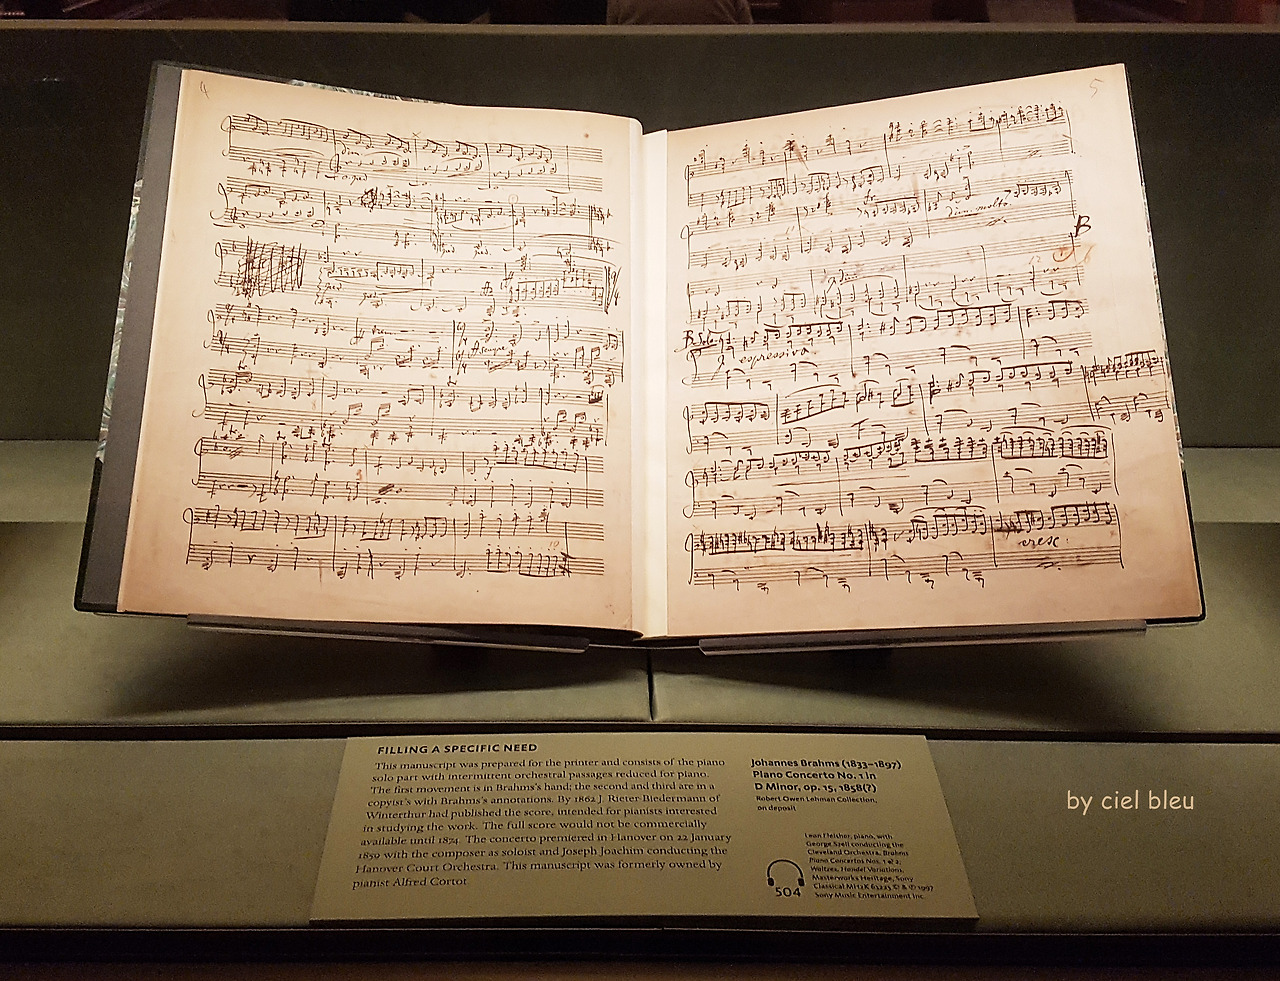 4
5
dim. molto
B
B Solo
espressivo
cresc.
FILLING A SPECIFIC NEED
This manuscript was prepared for the printer and consists of the piano
solo part with intermittent orchestral passages reduced for piano.
The first movement is in Brahms's hand; the second and third are in a
copyist's with Brahms's annotations. By 1862 J. Rieter-Biedermann of
Winterthur had published the score, intended for pianists interested
in studying the work. The full score would not be commercially
available until 1874. The concerto premiered in Hanover on 22 January
1859 with the composer as soloist and Joseph Joachim conducting the
Hanover Court Orchestra. This manuscript was formerly owned by
pianist Alfred Cortot.
Johannes Brahms (1833–1897)
Piano Concerto No. 1 in
D Minor, op. 15, 1858(?)
Robert Owen Lehman Collection,
on deposit
Leon Fleisher, piano, with
George Szell conducting the
Cleveland Orchestra. Brahms
Piano Concertos Nos. 1 & 2;
Waltzes, Handel Variations,
Masterworks Heritage, Sony
Classical MH2K 63225 © & ℗ 1997
Sony Music Entertainment Inc.
504
by ciel bleu